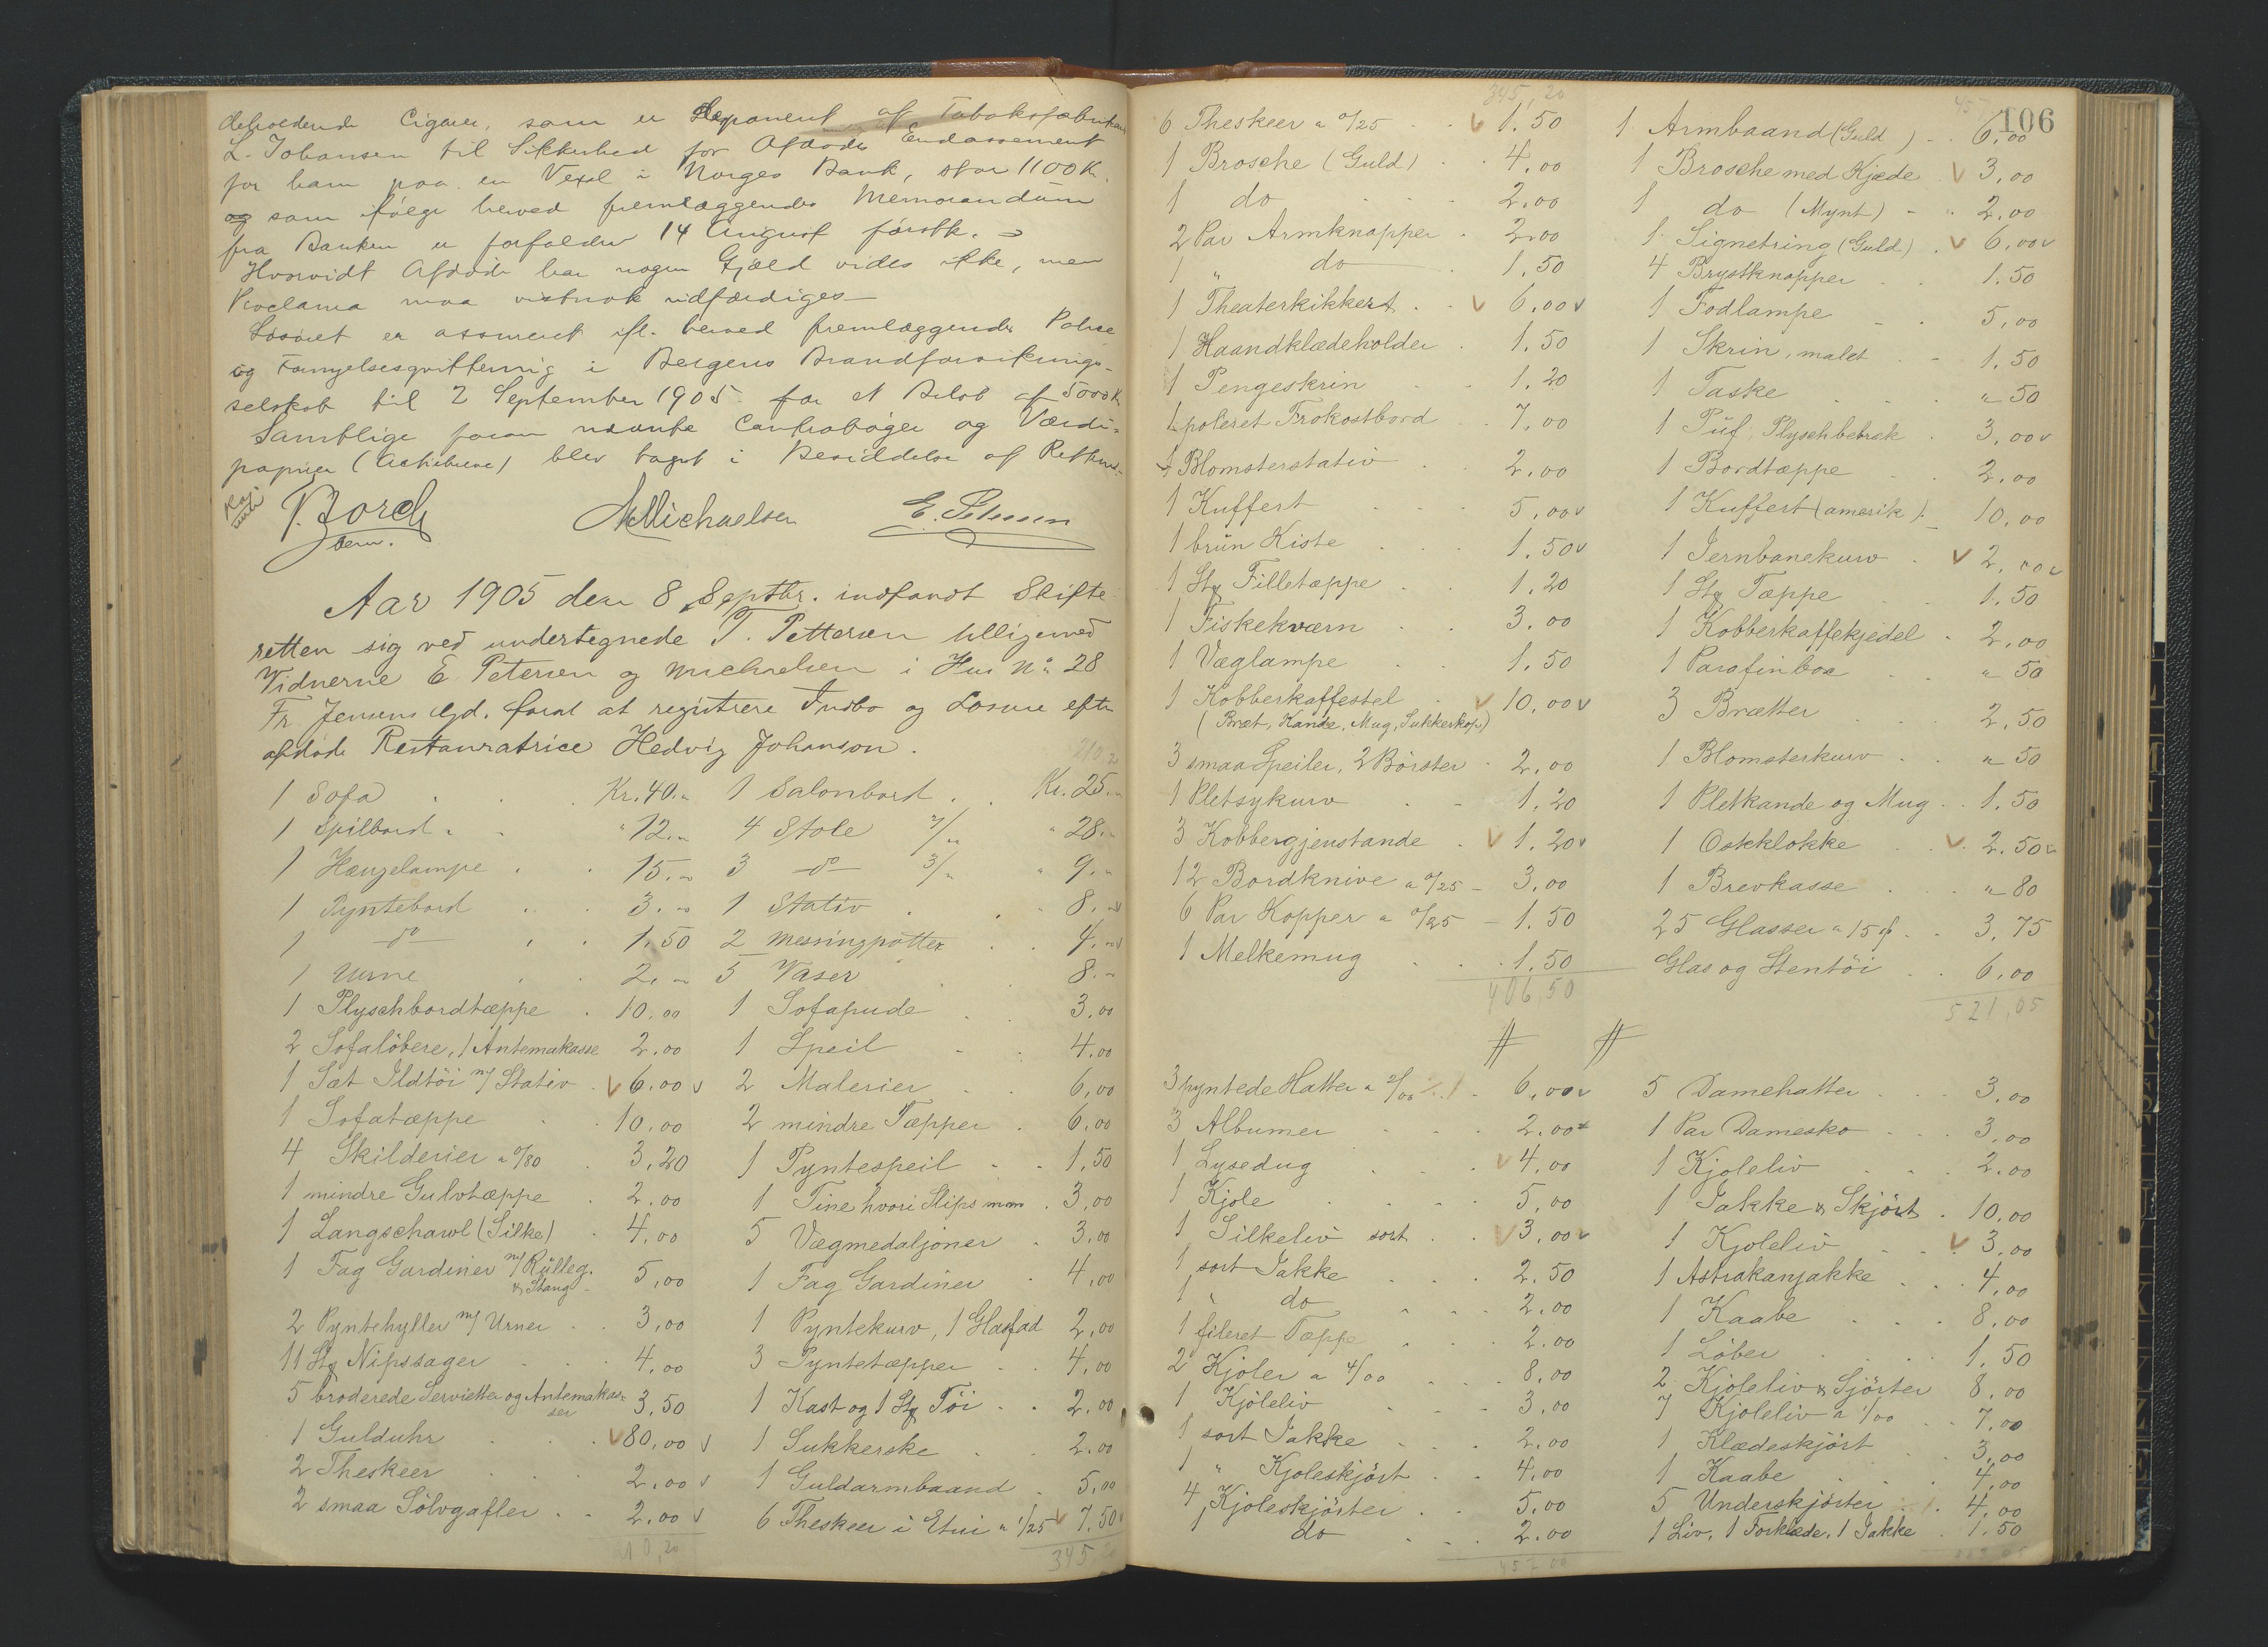 deholdende Cigarer, som er deponeret af Tobaksfabrikant
L. Johansen til Sikkerhed for Afdødes Endossement
for ham paa en Vexel i Norges Bank, stor 1100 Kr.
og som ifølge herved fremlæggendes Memorandum
fra Banken er forfalden 14 August førstk.
Hvorvidt Afdøde har nogen Gjæld vides ikke, men
Proclama maa vistnok udfærdiges
Løsøret er assureret ifl. herved fremlæggendes Police
og Fornyelsesqvittering i Bergens Brandforsikrings-
selskab til 2 September 1905 for et Beløb af 5000 Kr
Samtlige foran nævnte Contrabøger og Værdi-
papirer (Actiebreve) blev taget i Besiddelse af Retten
Borch
bem.
A Michaelsen
E. Petersen
Aar 1905 den 8 Septbr. indfandt Skifte
retten sig ved undertegnede T. Pettersen tilligemed
Vidnerne E. Petersen og Michaelsen i Hus No 28
Fr. Jensens Egd. forat at registrere Indbo og Løsøre efter
afdøde Restauratrice Hedvig Johanson.
1 Sofa Kr. 40.„
1 Spilbord „ 12.„
1 Hængelampe 15.„
1 Pyntebord 3.„
1 do 1.50
1 Urne 2.„
1 Plyschbordtæppe 10.00
2 Sofaløbere, 1 Antemakasse 2.00
1 Sæt Ildtöi m/ Stativ 6.00
1 Sofatæppe 10.00
4 Skilderier a 0/80 3.20
1 mindre Gulvtæppe 2.00
1 Langschawl (Silke) 4.00
1 Fag Gardiner m/ Rülleg.
& Stang 5,00
2 Pyntehyller m/ Urner 3,00
11 Stg Nipssager 4,00
5 broderede Servietter og Antemakas-
ser 3,50
1 Gulduhr 80,00
2 Theskeer 2,00
2 smaa Sölvgafler 2,00
210,20
210,20
1 Salonbord Kr. 25.„
4 Stole 7/„ „ 28.„
3 do 3/„ „ 9.„
1 Stativ 8.„
2 Messingpotter 4.„
5 Vaser 8.„
1 Sofapude 3,00
1 Speil 4,00
2 Malerier 6,00
2 mindre Tæpper 6,00
1 Pyntespeil 1,50
1 Tine hvori Slips mm 3,00
5 Vægmedaljoner 3,00
1 Fag Gardiner 4,00
1 Pyntekurv, 1 Glasfad 2,00
3 Pyntetæpper 4,00
1 Kast og 1 Stg Töi 2,00
1 Sukkerske 2,00
1 Guldarmbaand 5,00
6 Theskeer i Etui a 1/25 7,50
345,20
345,20
6 Theskeer a 0/25 1.50
1 Brosche (Guld) 4.00
1 do 2.00
2 Par Armknapper 2.00
1 „ do 1.50
1 Theaterkikkert 6.00
1 Haandklædeholder 1.50
1 Pengeskrin 1.20
1 poleret Frokostbord 7,00
1 Blomsterstativ 2.00
1 Kuffert 5,00
1 brün Kiste 1.50
1 Stg Filletæppe 1.20
1 Fiskekværn 3.00
1 Væglampe 1.50
1 Kobberkaffestel 10,00
(Bræt, Kande, Mug, Sukkerkop)
3 smaa Speiler, 2 Börster 2,00
1 Pletsykurv 1.20
3 Kobbergjenstande 1.20
12 Bordknive a 0/25 3,00
6 Par Kopper a 0/25 1.50
1 Melkemug 1.50
406,50
106
1 Armbaand (Guld) 6,00
1 Brosche med Kjæde 3,00
1 do (Mynt) 2,00
1 Signetring (Guld) 6,00
4 Brystknapper 1.50
1 Fodlampe 5,00
1 Skrin, malet 1.50
1 Taske „ 50
1 Püf, Plyschbetræk 3,00
1 Bordtæppe 2,00
1 Kuffert (amerik) 10,00
1 Jernbanekurv 2,00
1 Stg Tæppe 1.50
1 Kobberkaffekjedel 2,00
1 Parafinbox „ 50
3 Brætter 2,50
1 Blomsterkurv „ 50
1 Pletkande og Mug 1.50
1 Ostklokke 2.50
1 Brevkasse „ 80
25 Glasser a 15 3,75
Glas og Stentöi 6,00
521,05
3 pyntede Hatter a 2/00 6,00
3 Albumer 2.00
1 Lysedug 4,00
1 Kjole 5,00
1 Silkeliv sort 3,00
1 sort Jakke 2.50
1 „ do 2.00
1 fileret Tæppe 2.00
2 Kjoler a 4/00 8,00
1 Kjöleliv 3,00
1 sort Jakke 2.00
1 „ Kjoleskjört 4,00
4 Kjoleskjörter 5,00
1 do 2.00
457,00
5 Damehatter 3,00
1 Par Damesko 3,00
1 Kjoleliv 2.00
1 Jakke & Skjört 10,00
1 Kjoleliv 3,00
1 Astrakanjakke 4,00
1 Kaabe 8,00
1 Löber 1.50
2 Kjoleliv & Sjörter 8,00
7 Kjoleliv a 1/00 7,00
1 Klædeskjört 3,00
1 Kaabe 4,00
5 Underskjörter 4,00
1 Liv, 1 Forklæde, 1 Jakke 1.50